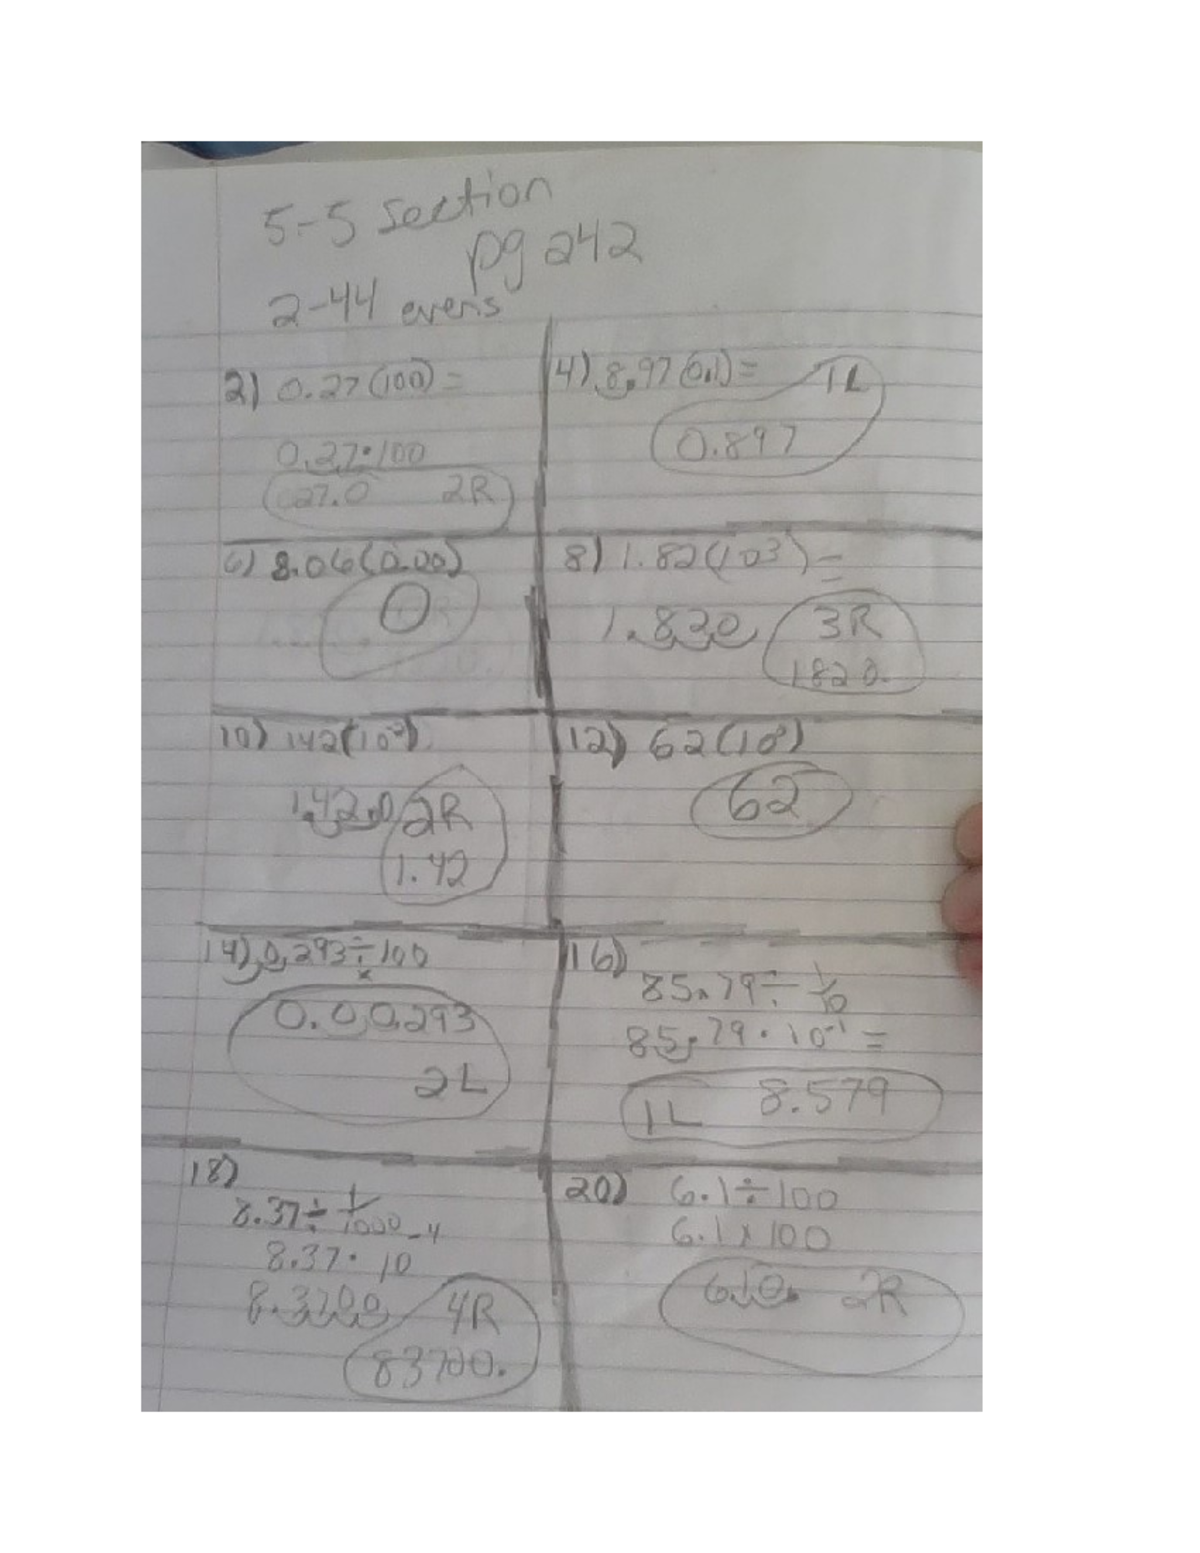 5-5 section
pg 242
2-44 evens
2) 0.27(100) =
0.27•100
027.0 2R
4) 8.97(0.1) = 1L
0.897
6) 8.06(0.00)
0
8) 1.82(10³) =
1.820 3R
1820.
10) 142(10⁻²)
142.0 2R
1.42
12) 62(10⁰)
62
14) 0.293÷100
x
0.00293
2L
16)
85.79÷ 1/10
85.79 • 10⁻¹ =
1L 8.579
18)
8.37÷ 1/1000
8.37 • 10⁻⁴
8.3700 4R
83700.
20) 6.1÷100
6.1x100
610. 2R